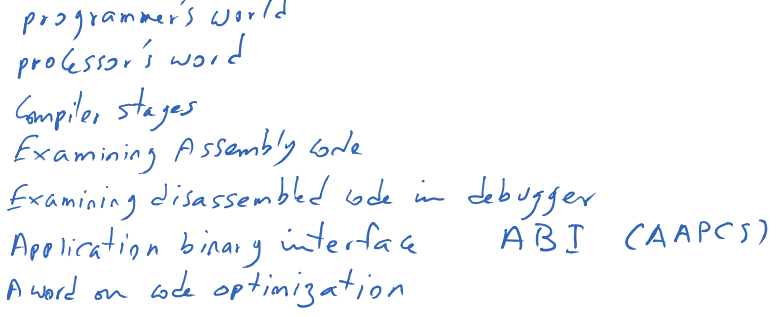 programmer's world
processor's word
Compiler stages
Examining Assembly code
Examining disassembled code in debugger
Application binary interface ABI (AAPCS)
A word on code optimization